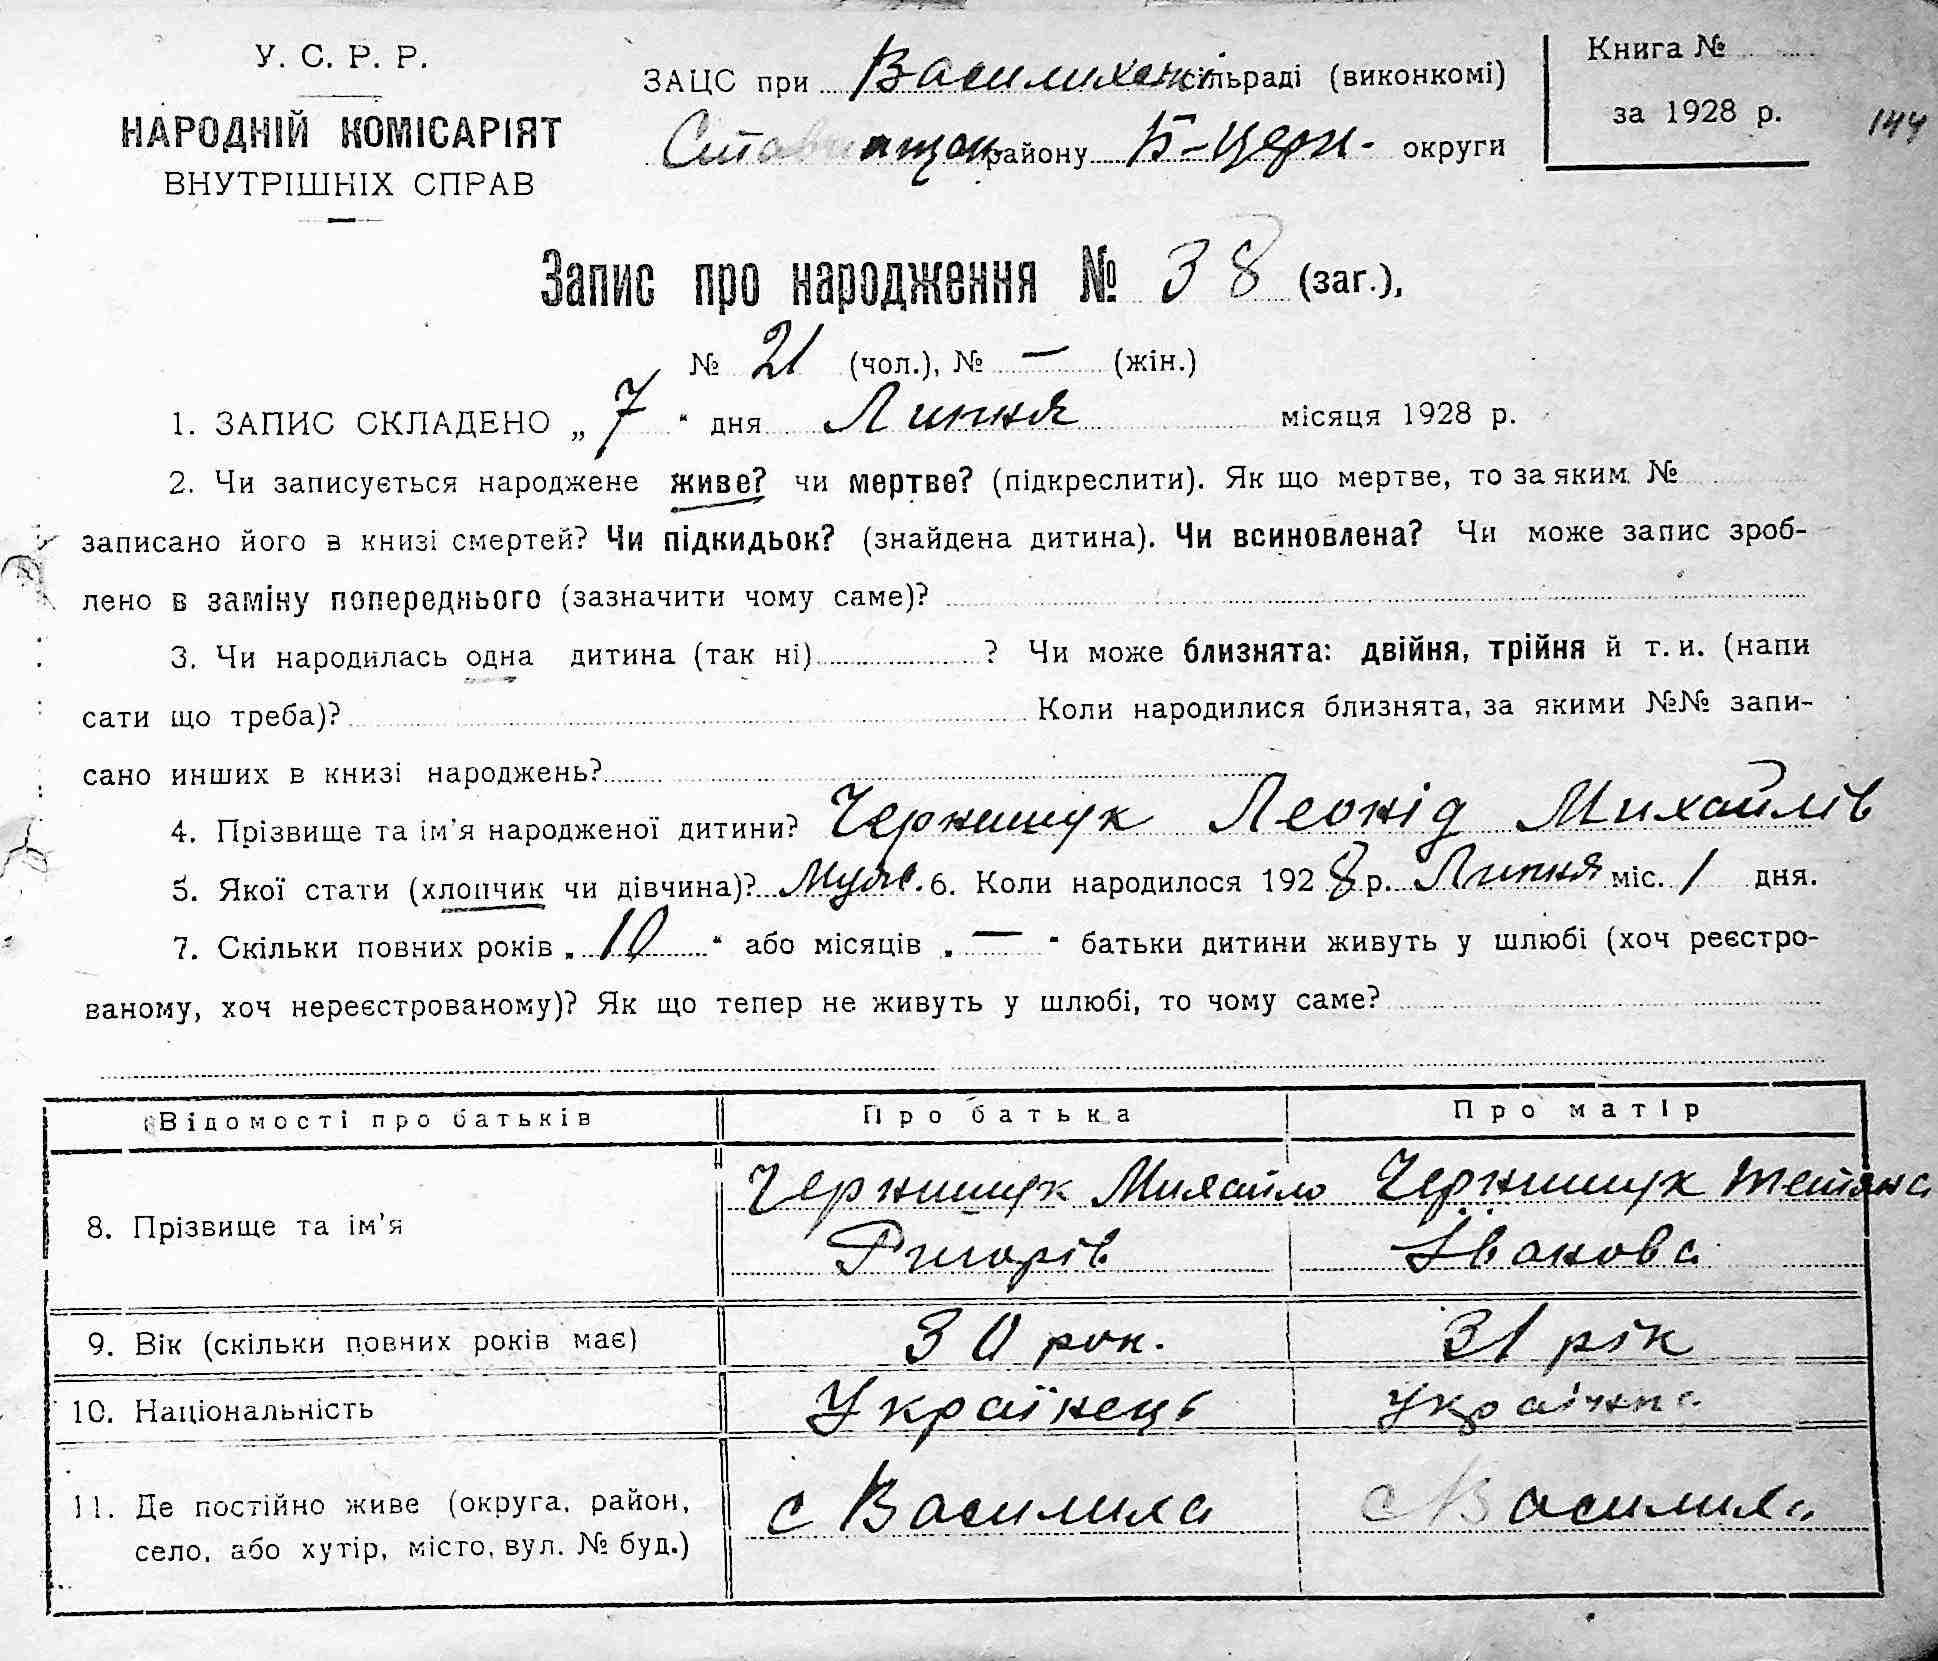 У. С. Р. Р.
НАРОДНІЙ КОМІСАРІЯТ
ВНУТРІШНІХ СПРАВ
ЗАЦС при Василихск. сільраді (виконкомі)
Ставищан. району Б-Церк- округи
Книга №
за 1928 р.
144
Запис про народження № 38 (заг.),
№ 21 (чол.), № — (жін.)
1. ЗАПИС СКЛАДЕНО „ 7 “ дня Липня місяця 1928 р.
2. Чи записується народжене живе? чи мертве? (підкреслити). Як що мертве, то за яким №
записано його в книзі смертей? Чи підкидьок? (знайдена дитина). Чи всиновлена? Чи може запис зроб-
лено в заміну попереднього (зазначити чому саме)?
3. Чи народилась одна дитина (так ні) ? Чи може близнята: двійня, трійня й т. и. (напи
сати що треба)? Коли народилися близнята, за якими №№ запи-
сано инших в книзі народжень?
4. Прізвище та ім'я народженої дитини? Чернишук Леонід Михайлів
5. Якої стати (хлопчик чи дівчина)? Муж. 6. Коли народилося 1928 р. Липня міс. 1 дня.
7. Скільки повних років „ 10 “ або місяців „ — “ батьки дитини живуть у шлюбі (хоч реєстро-
ваному, хоч нереєстрованому)? Як що тепер не живуть у шлюбі, то чому саме?
Відомості про батьків Про батька Про матір
8. Прізвище та ім'я Чернишук Михайло Чернишук Тетяна
Григорів Іванова
9. Вік (скільки повних років має) 30 рок. 31 рік
10. Національність Українець Українка
11. Де постійно живе (округа, район, с Василиха с Василиха
село, або хутір, місто, вул. № буд.)